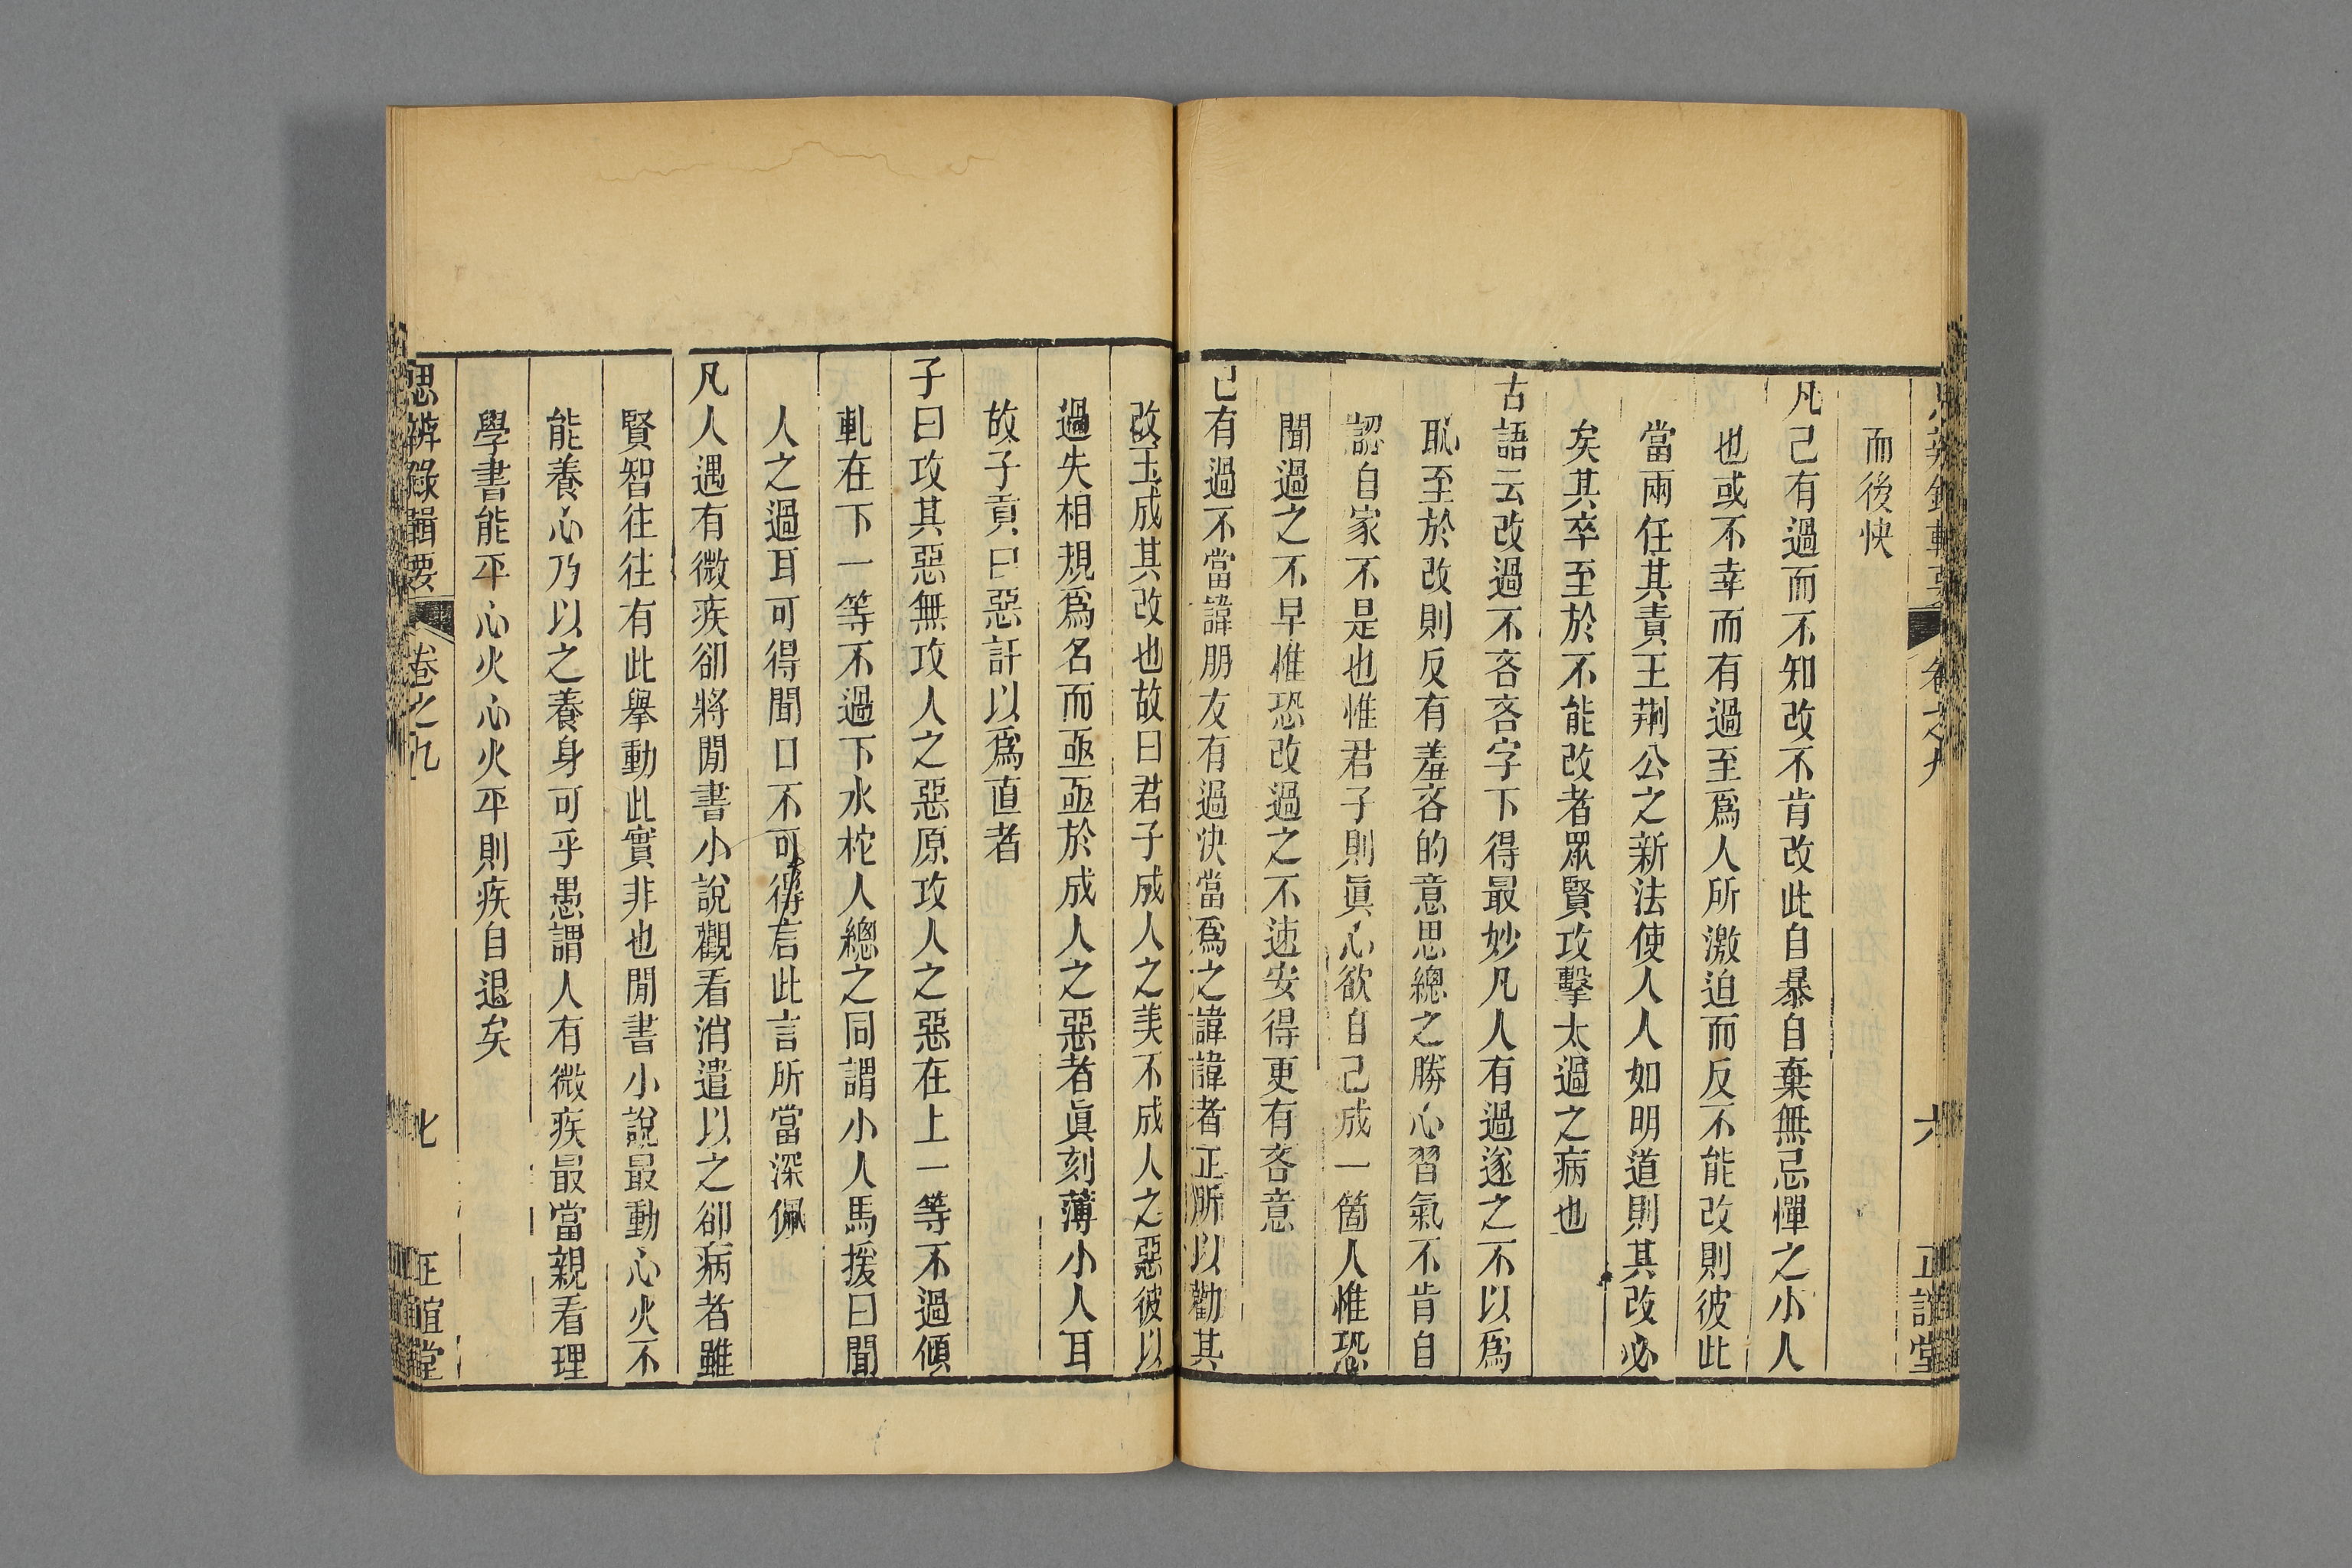 而後快
凡己有過而不知改不肯改此自暴自棄無忌憚之小人
也或不幸而有過至爲人所激迫而反不能改則彼此
當兩任其責王荆公之新法使人人如明道則其改必
矣其卒至於不能改者眾賢攻擊太過之病也
古語云改過不吝吝字下得最妙凡人有過遂之不以爲
恥至於改則反有羞吝的意思總之勝心習氣不肯自
認自家不是也惟君子則眞心欲自己成一箇人惟恐
聞過之不早惟恐改過之不速安得更有吝意
己有過不當諱朋友有過決當爲之諱諱者正所以勸其
改玉成其改也故曰君子成人之美不成人之惡彼以
過失相規爲名而亟亟於成人之惡者眞刻薄小人耳
故子貢曰惡訐以爲直者
子曰攻其惡無攻人之惡原攻人之惡在上一等不過傾
軋在下一等不過下水柁人總之同謂小人馬援曰聞
人之過耳可得聞口不可得言此言所當深佩
凡人遇有微疾卻將閒書小說觀看消遣以之卻病者雖
賢智往往有此舉動此實非也閒書小說最動心火不
能養心乃以之養身可乎愚謂人有微疾最當親看理
學書能平心火心火平則疾自退矣
思辨錄輯要
卷之九
七
正誼堂